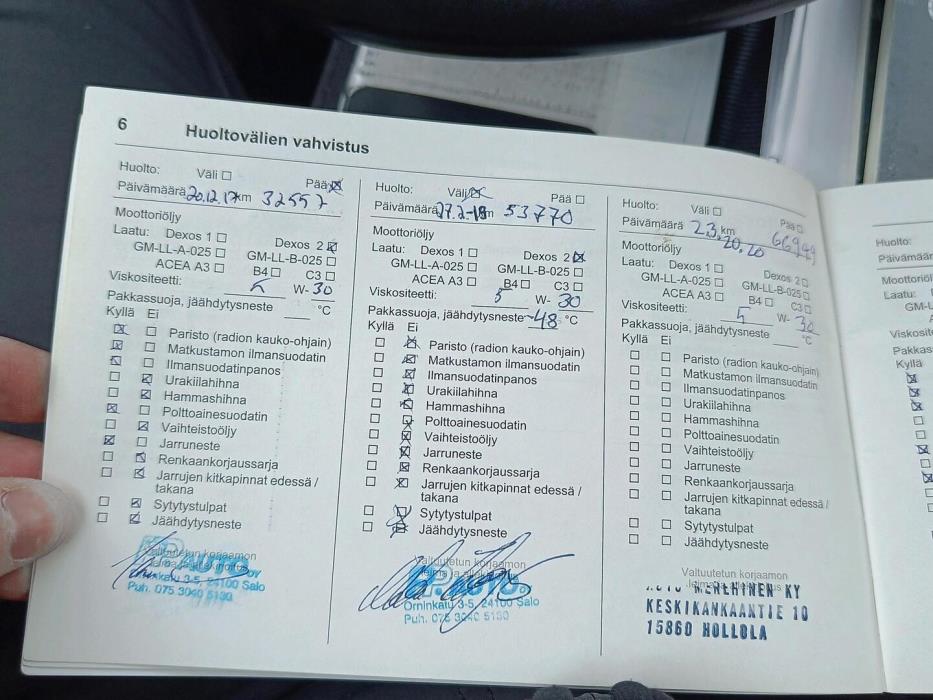 6 Huoltovälien vahvistus
Huolto: Väli ☐ Pää ☒
Päivämäärä 20.12.17 km 32557
Moottoriöljy
Laatu: Dexos 1 ☐ Dexos 2 ☒
GM-LL-A-025 ☐ GM-LL-B-025 ☐
ACEA A3 ☐ B4 ☐ C3 ☐
Viskositeetti: 5 W- 30
Pakkassuoja, jäähdytysneste °C
Kyllä Ei
☒ ☐ Paristo (radion kauko-ohjain)
☒ ☐ Matkustamon ilmansuodatin
☒ ☐ Ilmansuodatinpanos
☐ ☒ Urakiilahihna
☐ ☒ Hammashihna
☒ ☐ Polttoainesuodatin
☐ ☒ Vaihteistoöljy
☒ ☐ Jarruneste
☐ ☒ Renkaankorjaussarja
☐ ☒ Jarrujen kitkapinnat edessä /
takana
☐ ☒ Sytytystulpat
☐ ☒ Jäähdytysneste
Valtuutetun korjaamon
AUTO OY
Orninkatu 3-5, 24100 Salo
Puh. 075 3040 5130
Huolto: Väli ☒ Pää ☐
Päivämäärä 27.2-19 km 53770
Moottoriöljy
Laatu: Dexos 1 ☐ Dexos 2 ☒
GM-LL-A-025 ☐ GM-LL-B-025 ☐
ACEA A3 ☐ B4 ☐ C3 ☐
Viskositeetti: 5 W- 30
Pakkassuoja, jäähdytysneste -48 °C
Kyllä Ei
☐ ☒ Paristo (radion kauko-ohjain)
☐ ☒ Matkustamon ilmansuodatin
☐ ☒ Ilmansuodatinpanos
☐ ☒ Urakiilahihna
☐ ☒ Hammashihna
☐ ☒ Polttoainesuodatin
☐ ☒ Vaihteistoöljy
☐ ☒ Jarruneste
☐ ☒ Renkaankorjaussarja
☐ ☒ Jarrujen kitkapinnat edessä /
takana
☐ ☒ Sytytystulpat
☐ ☒ Jäähdytysneste
Valtuutetun korjaamon
AUTO OY
Orninkatu 3-5, 24100 Salo
Puh. 075 3040 5130
Huolto: Väli ☐ Pää ☐
Päivämäärä 23.20.20 km 66949
Moottoriöljy
Laatu: Dexos 1 ☐ Dexos 2 ☐
GM-LL-A-025 ☐ GM-LL-B-025 ☐
ACEA A3 ☐ B4 ☐ C3 ☐
Viskositeetti: 5 W- 30
Pakkassuoja, jäähdytysneste °C
Kyllä Ei
☐ ☐ Paristo (radion kauko-ohjain)
☐ ☐ Matkustamon ilmansuodatin
☐ ☐ Ilmansuodatinpanos
☐ ☐ Urakiilahihna
☐ ☐ Hammashihna
☐ ☐ Polttoainesuodatin
☐ ☐ Vaihteistoöljy
☐ ☐ Jarruneste
☐ ☐ Renkaankorjaussarja
☐ ☐ Jarrujen kitkapinnat edessä /
takana
☐ ☐ Sytytystulpat
☐ ☐ Jäähdytysneste
Valtuutetun korjaamon
KY
KESKIKANKAANTIE 10
15860 HOLLOLA
Huolto:
Moottoriöljy
Laatu:
Kyllä